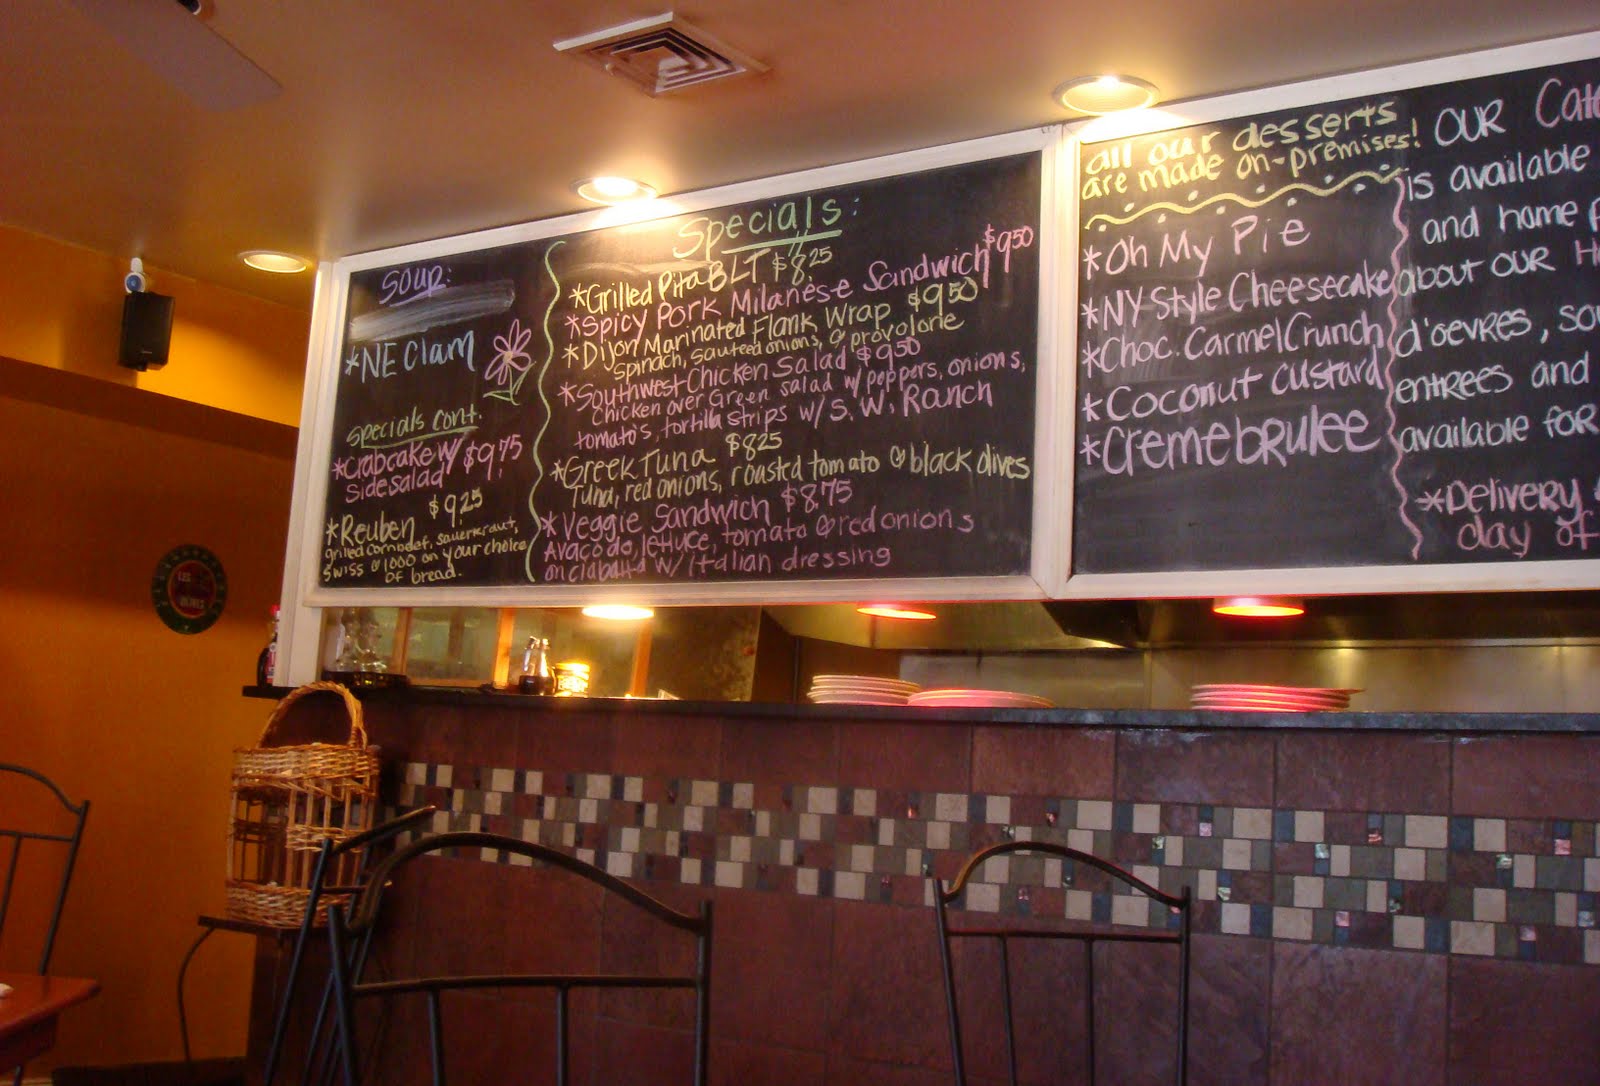 Soup:
*NE Clam
Specials cont.
*Crabcake w/ $9.75
Side salad
*Reuben $9.25
grilled cornbeef, sauerkraut,
Swiss & 1000 on your choice
of bread.
Specials:
*Grilled Pita BLT $8.25
*Spicy Pork Milanese Sandwich $9.50
*Dijon Marinated Flank Wrap $9.50
Spinach, sauteed onions, & provolone
*Southwest Chicken Salad $9.50
Chicken over Green salad w/ peppers, onions,
tomato's, tortilla strips w/ S.W. Ranch
*Greek Tuna $8.25
Tuna, red onions, roasted tomato & black olives
*Veggie Sandwich $8.75
Avacodo, lettuce, tomato & red onions
on ciabatta w/ italian dressing
all our desserts
are made on-premises!
*Oh My Pie
*NY Style Cheesecake
*Choc. Carmel Crunch
*Coconut custard
*Cremebrulee
OUR
is available
and home
about our
d'oevres,
entrees and
available for
*Delivery
day of